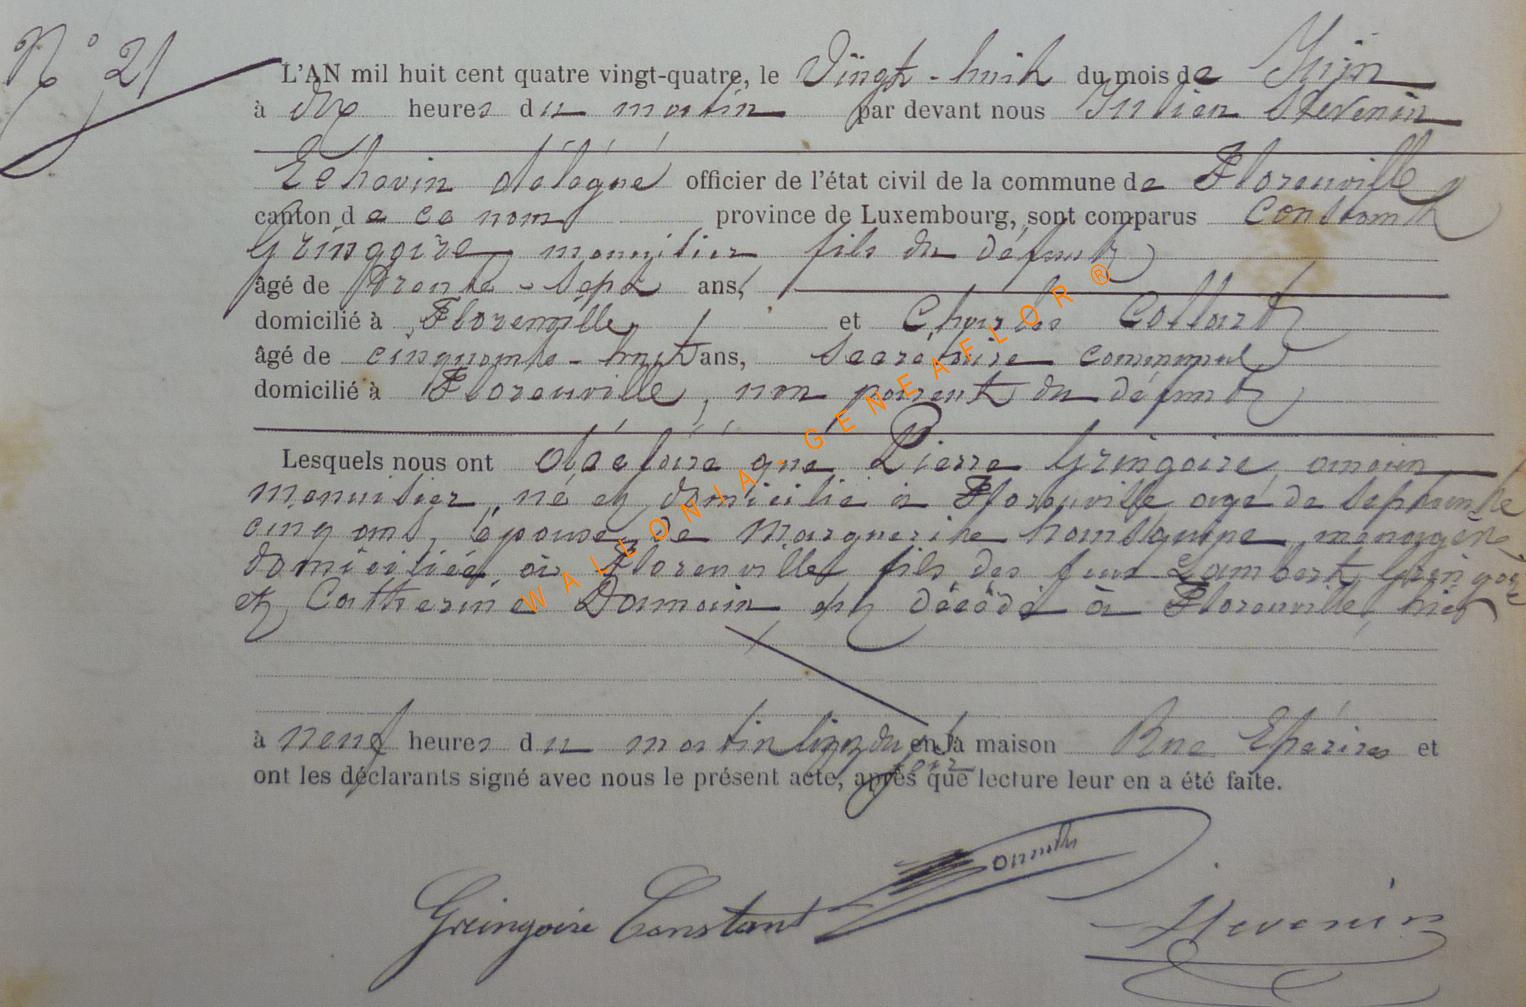 N° 21
L'AN mil huit cent quatre vingt-quatre, le Vingt-huit du mois de Juin
à dix heures du matin par devant nous Julien Stevenin
Echevin délégué officier de l'état civil de la commune de Florenville
canton de ce nom province de Luxembourg, sont comparus Constant
Gringoire menuisier fils du défunt
âgé de trente-sept ans,
domicilié à Florenville, et Charles Collart
âgé de cinquante-huit ans, Secrétaire communal
domicilié à Florenville, non parent du défunt
Lesquels nous ont déclaré que Pierre Gringoire, ancien
menuisier, né et domicilié à Florenville agé de septante
cinq ans, époux de Marguerite ménagère,
domiciliée à Florenville fils des feux Lambert Gringoire
et Catherine Damain est décédé à Florenville, hier
à neuf heures du matin en sa maison Rue et
ont les déclarants signé avec nous le présent acte, après que lecture leur en a été faite.
Gringoire Constant Stevenin
WALLONIA-GENEAFLOR®